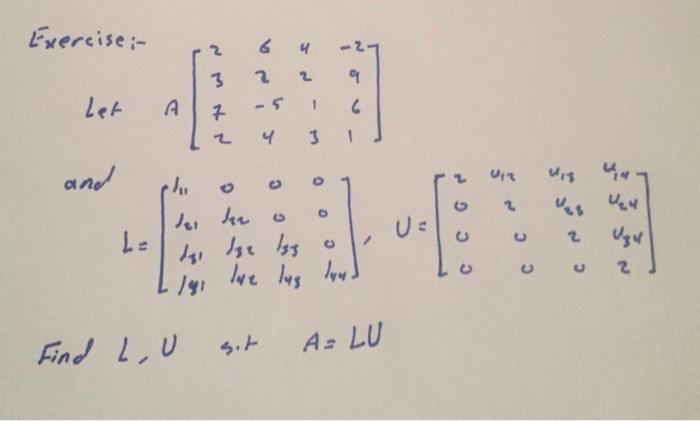 Exercise:-
Let A [ 2 6 4 -2
3 2 2 9
7 -5 1 6
2 4 3 1 ]
and L = [ l11 0 0 0
l21 l22 0 0
l31 l32 l33 0
l41 l42 l43 l44 ] , U = [ 2 u12 u13 u14
0 2 u23 u24
0 0 2 u34
0 0 0 2 ]
Find L, U s.t A = LU